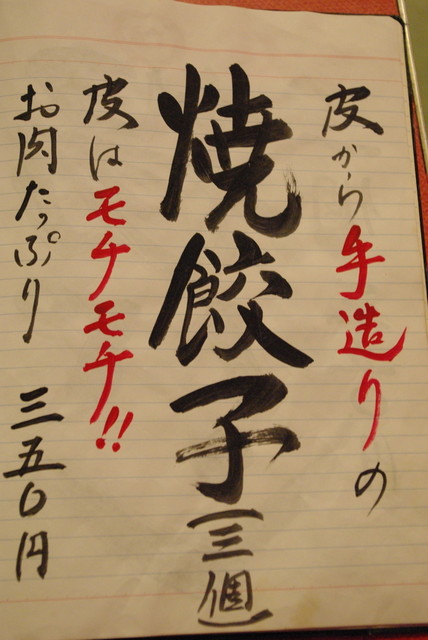 皮から手造りの
焼餃子(三個)
皮はモチモチ!!
お肉たっぷり 三五〇円